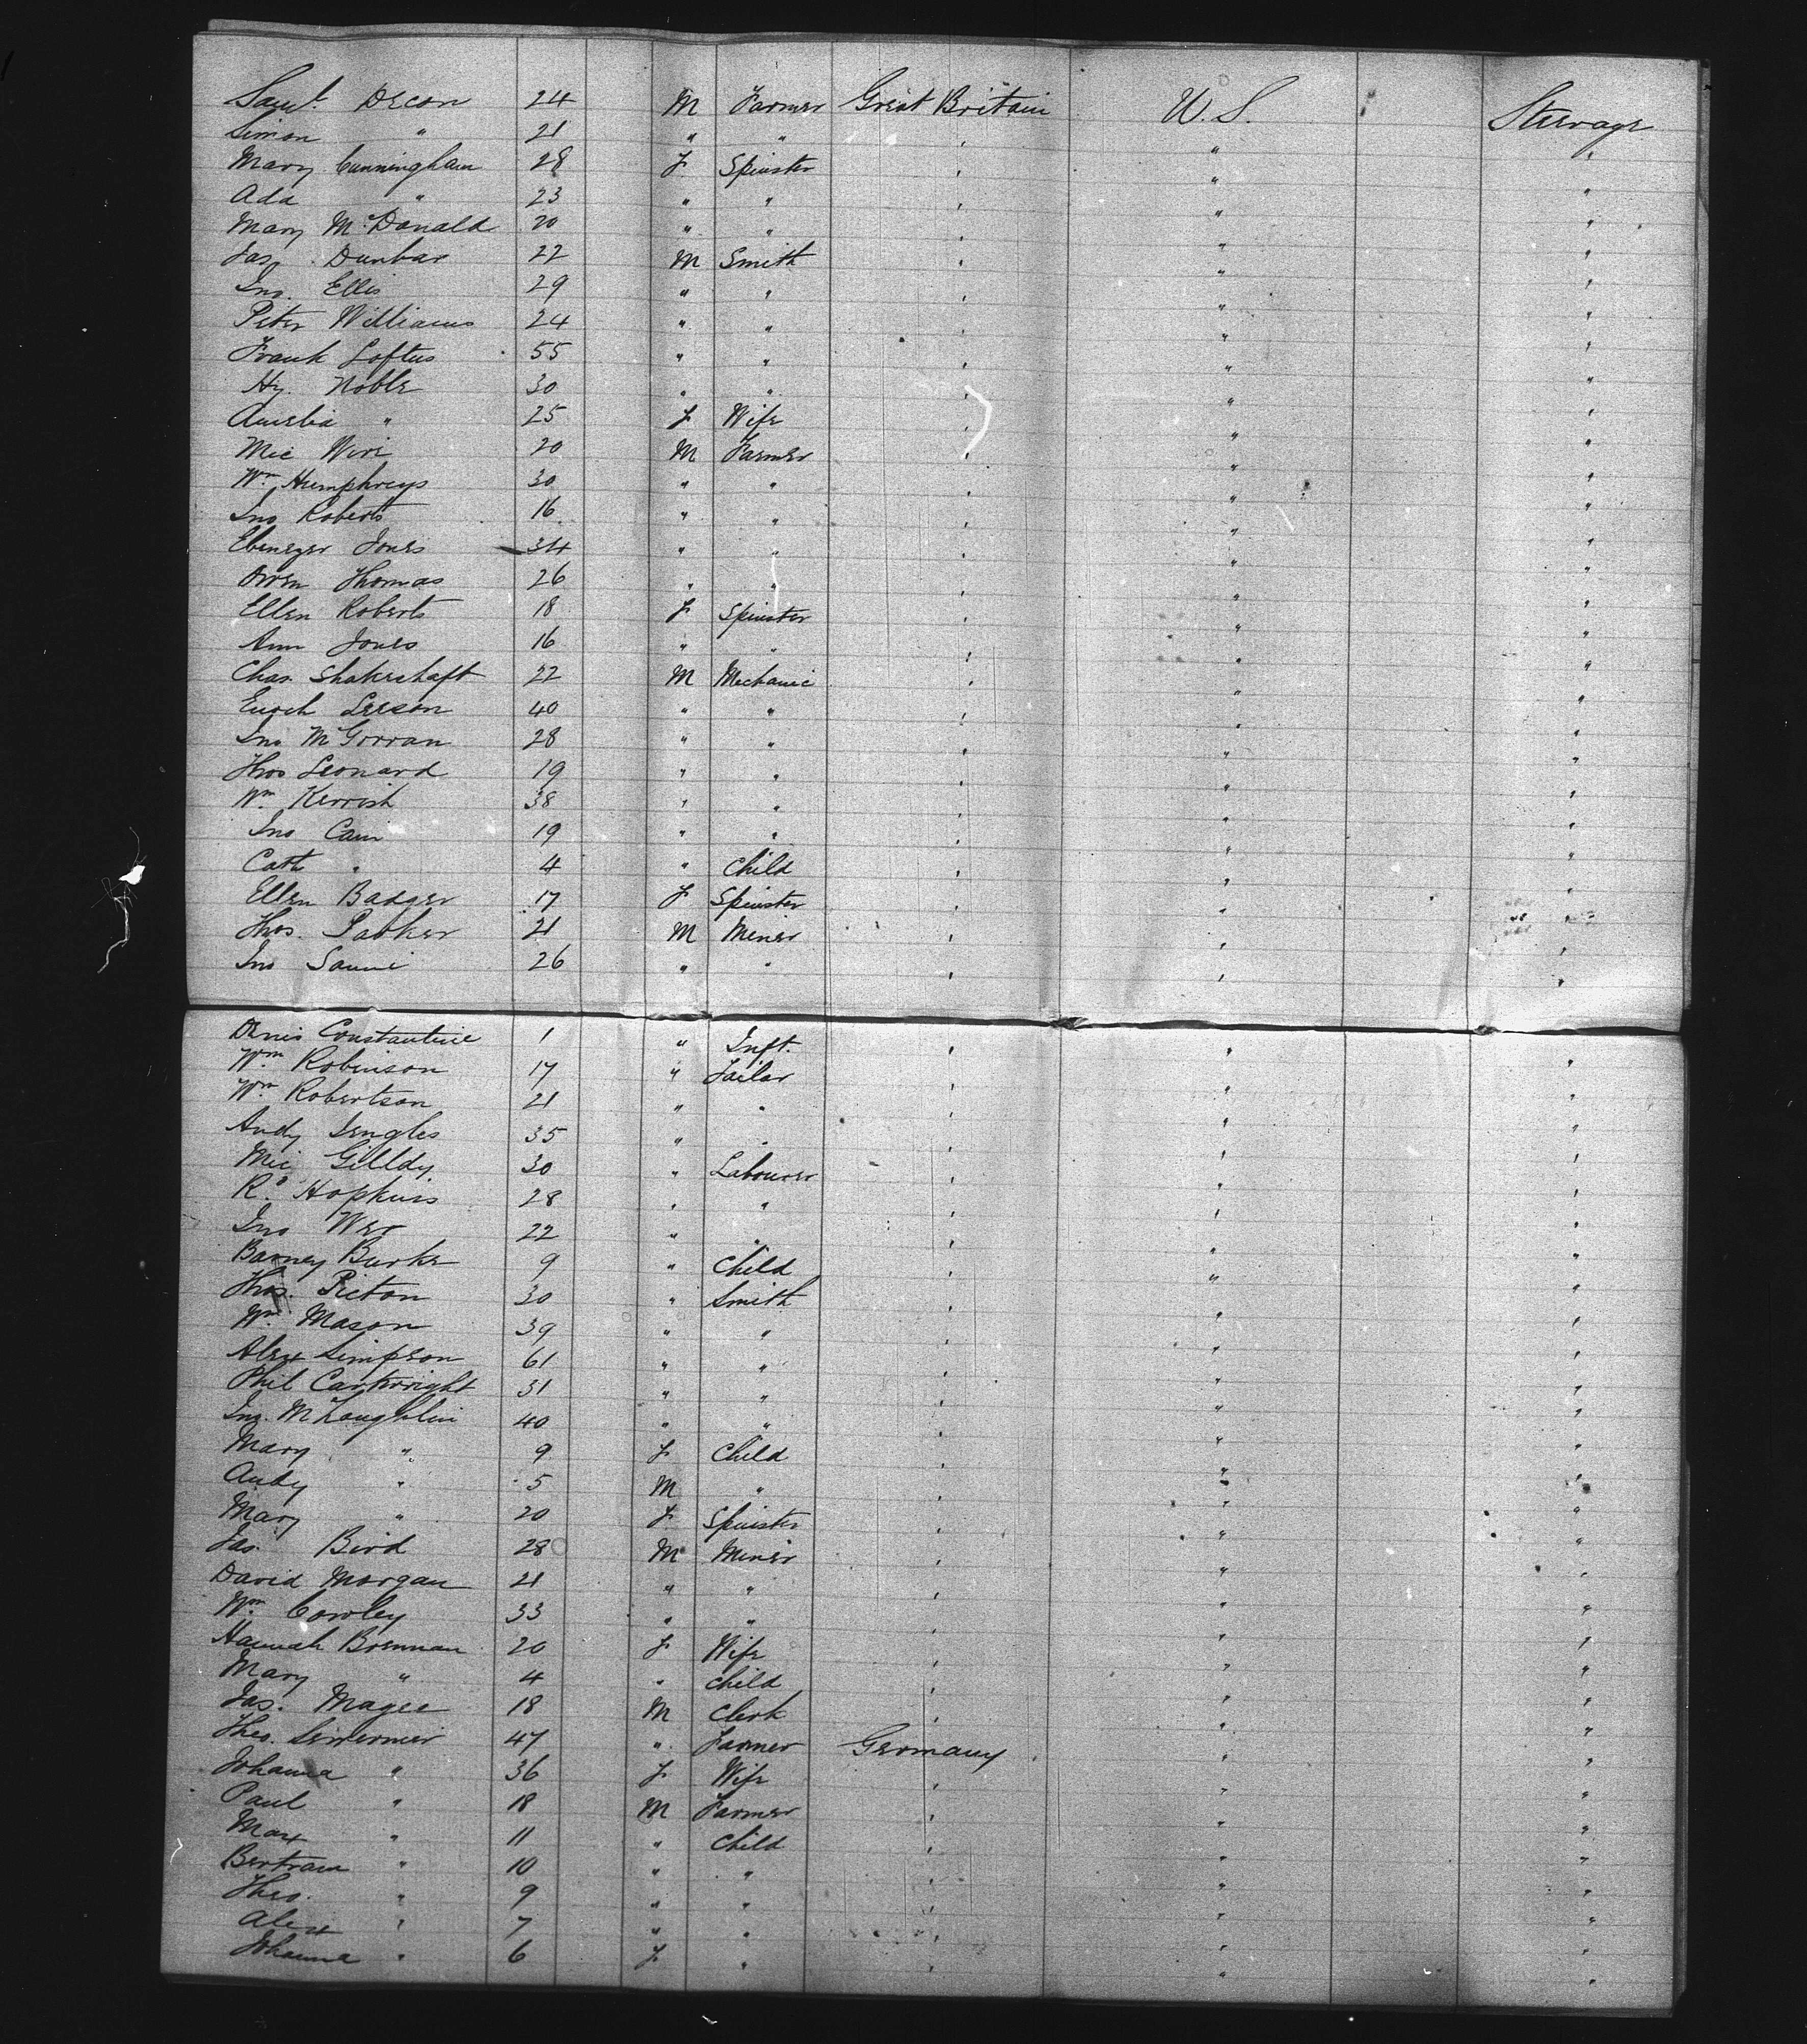 Saml. Decon 24 M Farmer Great Britain U.S. Steerage
Simon " 21 " " " " "
Mary Cunningham 28 F Spinster " " "
Ada " 23 " " " " "
Mary McDonald 20 " " " " "
Jas Dunbar 22 M Smith " " "
Jno. Ellis 29 " " " " "
Peter Williams 24 " " " " "
Frank Loftus 55 " " " " "
Hy. Noble 30 " " " " "
Amelia " 25 F Wife " " "
Mic 20 M Farmer " " "
Wm Humphreys 30 " " " " "
Jno Roberts 16 " " " " "
Ebenezer Jones 34 " " " " "
Owen Thomas 26 " " " " "
Ellen Roberts 18 F Spinster " " "
Ann Jones 16 " " " " "
Chas. Shakeshaft 22 M Mechanic " " "
Enoch Leeson 40 " " " " "
Jno McGorran 28 " " " " "
Thos Leonard 19 " " " " "
Wm Kerrish 38 " " " " "
Jno Cain 19 " " " " "
Cath " 4 " Child " " "
Ellen Badger 17 F Spinster " " "
Thos. 21 M Miner " " "
Jno 26 " " " " "
Denis Constantine 1 " Inft. " " "
Wm Robinson 17 " Tailor " " "
Wm Robertson 21 " " " " "
Andy 35 " " " " "
Mic Gilldy 30 " Labourer " " "
Rd Hopkins 28 " " " " "
Jno 22 " " " " "
Barney Burke 9 " Child " " "
Thos. Picton 30 " Smith " " "
Wm Mason 39 " " " " "
Alex Simpson 61 " " " " "
Phil Cartwright 31 " " " " "
Jno. McLaughlin 40 " " " " "
Mary " 9 F Child " " "
Andy " 5 M " " " "
Mary " 20 F Spinster " " "
Jas. Bird 28 M Miner " " "
David Morgan 21 " " " " "
Wm Cowley 33 " " " " "
Hannah Brennan 20 F Wife " " "
Mary " 4 " Child " " "
Jas. Magee 18 M Clerk " " "
Theo. 47 " Farmer Germany " "
Johanna " 36 F Wife " " "
Paul " 18 M Farmer " " "
Max " 11 " Child " " "
Bertram " 10 " " " " "
Theo. " 9 " " " " "
Alex " 7 " " " " "
Johanna " 6 F " " " "